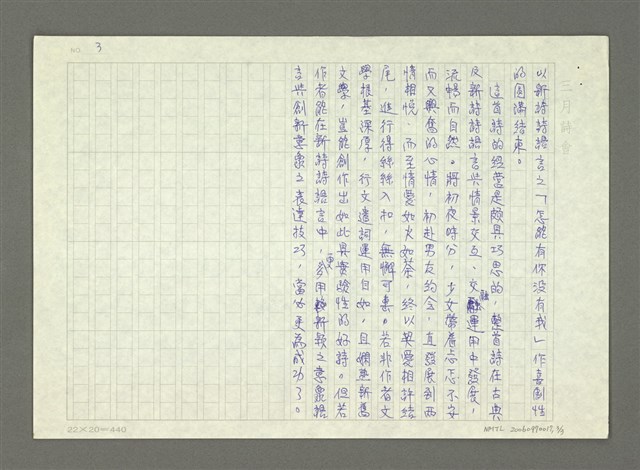 NO. 3
三月詩會
以新詩詩語言之「怎能有你沒有我」作喜劇性
的圓滿結束。
這首詩的經營是頗具巧思的，整首詩在古典
及新詩詩語言與情景交互、交融運用中發展，
流暢而自然。將初夜時分，少女帶着忐忑不安
而又興奮的心情，初赴男友約會，直發展到兩
情相悅，而至情愛如火如荼，終以與愛相許結
尾，進行得絲絲入扣，無懈可擊。若非作者文
學根基深厚，行文遣詞運用自如，且嫻熟新舊
文學，豈能創作出如此具實驗性的好詩。但若
作者能在新詩詩語言中，多用更新穎之意象語
言與創新意象之表達技巧，當必更為成功了。
22×20=440
NMTL 20060990015, 3/3